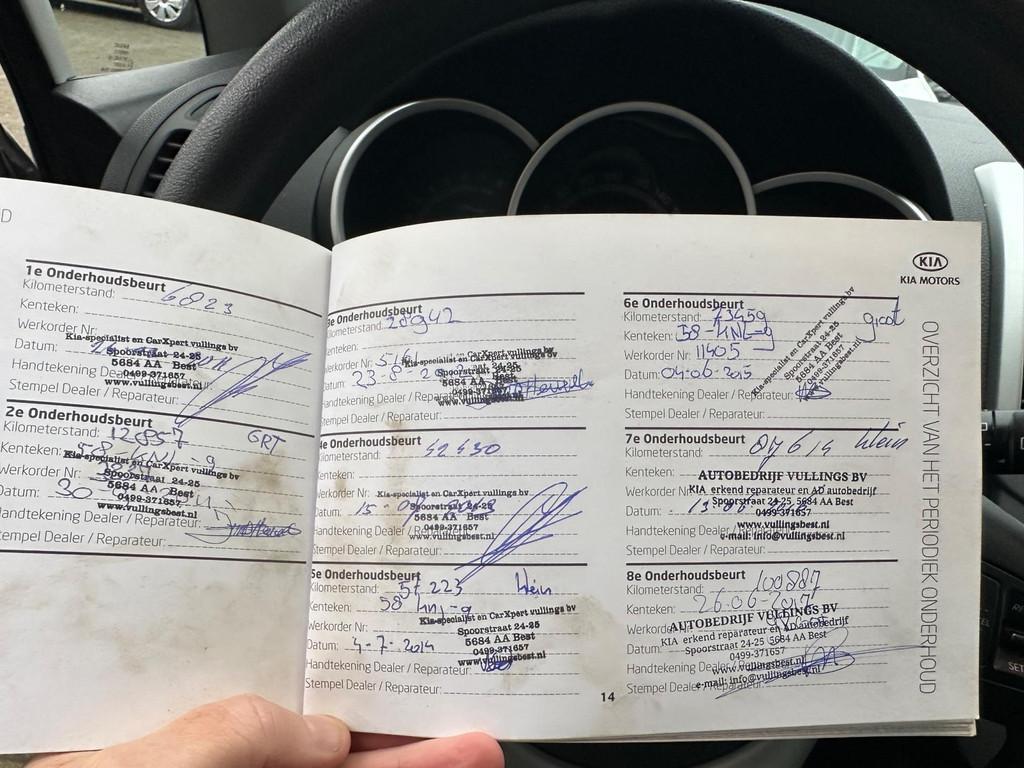 D
1e Onderhoudsbeurt
Kilometerstand: 6823
Kenteken:
Werkorder Nr:
Kia-specialist en CarXpert vullings bv
Datum:
Spoorstraat 24-25
5684 AA Best
Handtekening Dealer / Reparateur:
0499-371657
Stempel Dealer / Reparateur:
www.vullingsbest.nl
2e Onderhoudsbeurt
GRT
Kilometerstand: 12857
Kenteken: 58-KNL-9
Kia-specialist en CarXpert vullings bv
Werkorder Nr:
Spoorstraat 24-25
5684 AA Best
Datum: 30
0499-371657
www.vullingsbest.nl
Handtekening Dealer / Reparateur:
Stempel Dealer / Reparateur:
3e Onderhoudsbeurt
Kilometerstand: 28942
Kenteken:
Werkorder Nr:
Kia-specialist en CarXpert vullings bv
Spoorstraat 24-25
Datum: 23-8-
5684 AA Best
Handtekening Dealer / Reparateur:
0499-371657
www.vullingsbest.nl
Stempel Dealer / Reparateur:
4e Onderhoudsbeurt
Kilometerstand: 42430
Kenteken:
Werkorder Nr:
Kia-specialist en CarXpert vullings bv
Spoorstraat 24-25
Datum: 15-
5684 AA Best
Handtekening Dealer / Reparateur:
0499-371657
www.vullingsbest.nl
Stempel Dealer / Reparateur:
5e Onderhoudsbeurt
Kilometerstand: 57223 klein
Kenteken: 58 knl-9
Kia-specialist en CarXpert vullings bv
Werkorder Nr:
Spoorstraat 24-25
5684 AA Best
Datum: 4-7-2014
0499-371657
www.vullingsbest.nl
Handtekening Dealer / Reparateur:
Stempel Dealer / Reparateur:
14
KIA
KIA MOTORS
6e Onderhoudsbeurt
Kilometerstand: 73459 groot
Kenteken: 58-KNL-9
Werkorder Nr: 11505
Datum: 04-06-2015
Handtekening Dealer / Reparateur:
Stempel Dealer / Reparateur:
Kia-specialist en CarXpert vullings bv
Spoorstraat 24-25
5684 AA Best
0499-371657
www.vullingsbest.nl
7e Onderhoudsbeurt
Kilometerstand: 87614 klein
Kenteken:
AUTOBEDRIJF VULLINGS BV
Werkorder Nr:
KIA erkend reparateur en AD autobedrijf
Spoorstraat 24-25, 5684 AA Best
Datum:
0499-371657
www.vullingsbest.nl
Handtekening Dealer / Reparateur:
e-mail: info@vullingsbest.nl
Stempel Dealer / Reparateur:
8e Onderhoudsbeurt
Kilometerstand: 100887
Kenteken: 26-06-2017
AUTOBEDRIJF VULLINGS BV
Werkorder Nr:
KIA erkend reparateur en AD autobedrijf
Datum:
Spoorstraat 24-25, 5684 AA Best
0499-371657
Handtekening Dealer / Reparateur:
www.vullingsbest.nl
e-mail: info@vullingsbest.nl
Stempel Dealer / Reparateur:
OVERZICHT VAN HET PERIODIEK ONDERHOUD
SET